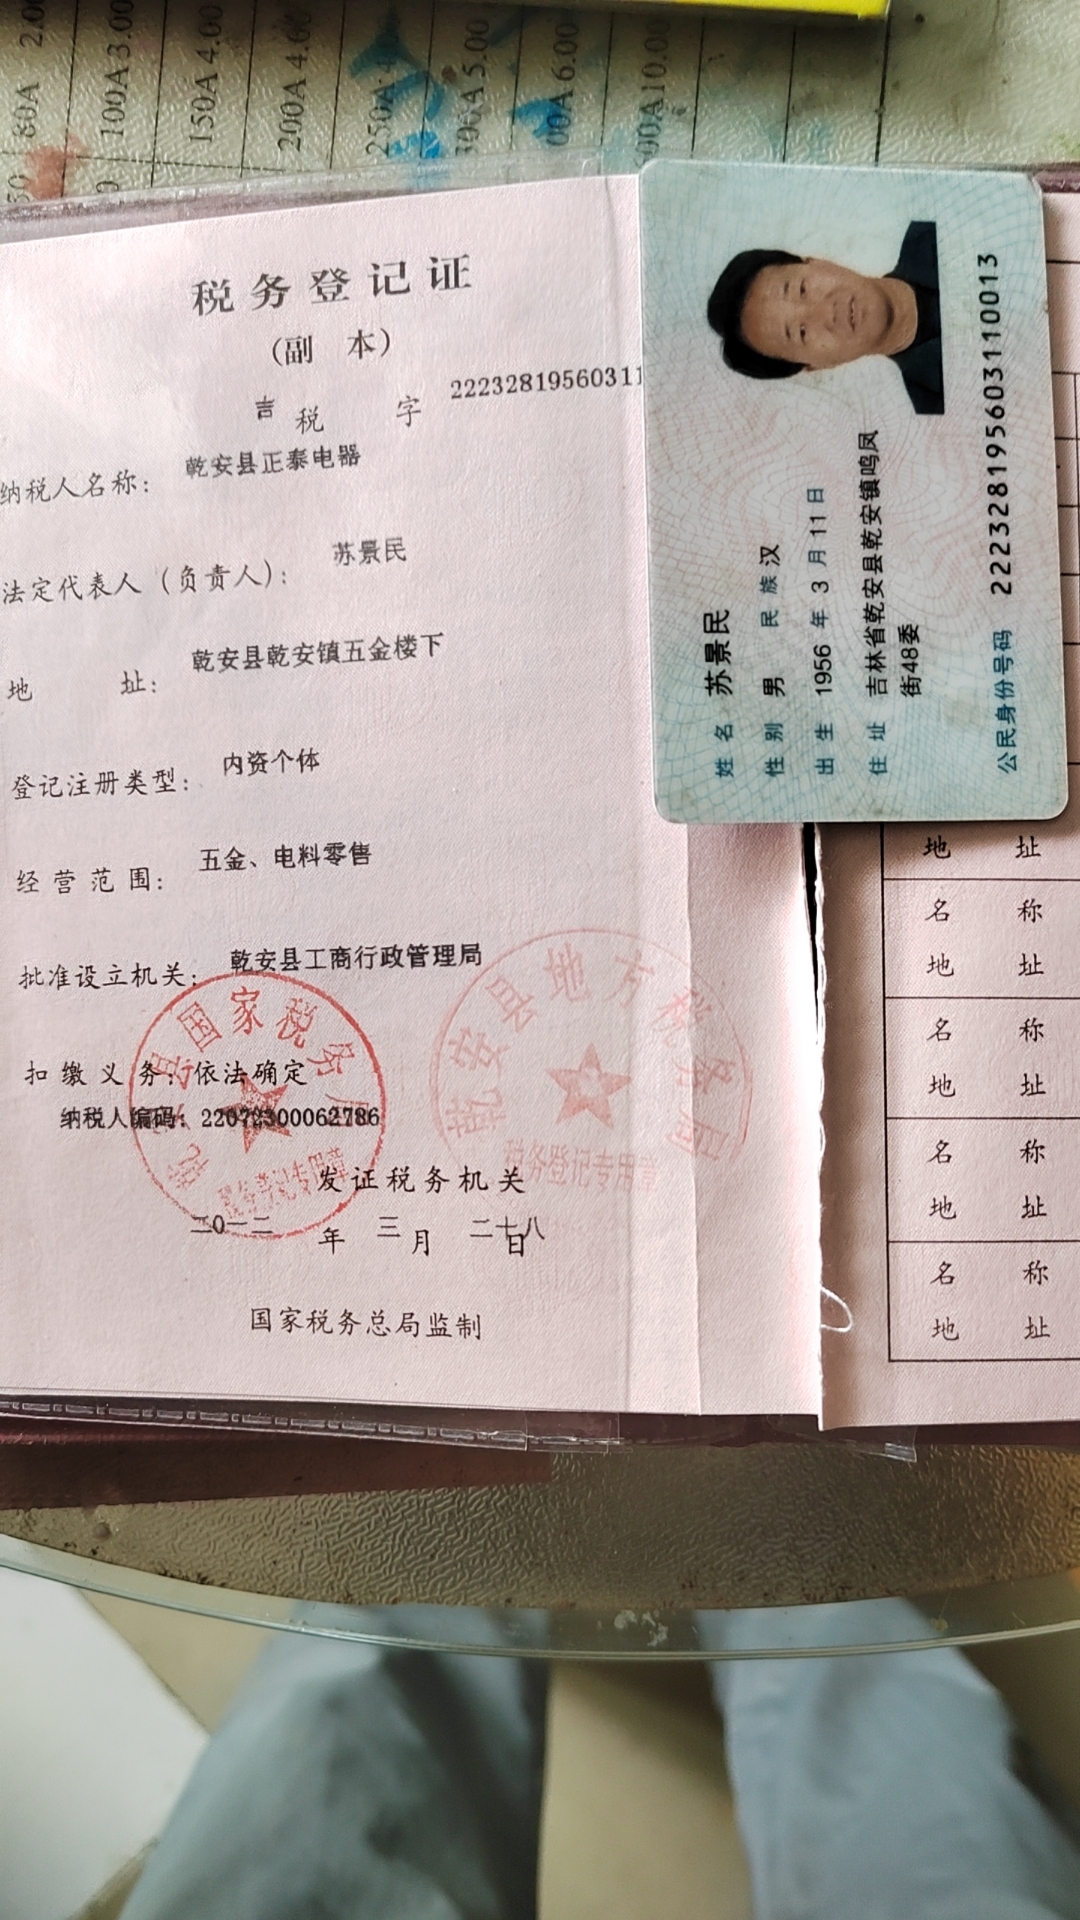 80A 2.00
100A 3.00
150A 4.00
200A 4.00
250A 4.
300A 5.00
00A 6.00
00A 10.00
税务登记证
(副 本)
吉 税 字 22232819560311
纳税人名称: 乾安县正泰电器
法定代表人(负责人): 苏景民
地 址: 乾安县乾安镇五金楼下
登记注册类型: 内资个体
经营范围: 五金、电料零售
批准设立机关: 乾安县工商行政管理局
扣缴义务: 依法确定
纳税人编码: 22072300062786
发证税务机关
二0一二 年 三 月 二十八 日
国家税务总局监制
县国家税务局
税务登记专用章
乾安县地方税务局
税务登记专用章
姓名 苏景民
性别 男 民族 汉
出生 1956 年 3 月 11 日
住址 吉林省乾安县乾安镇鸣凤
街48委
公民身份号码 222328195603110013
地 址
名 称
地 址
名 称
地 址
名 称
地 址
名 称
地 址